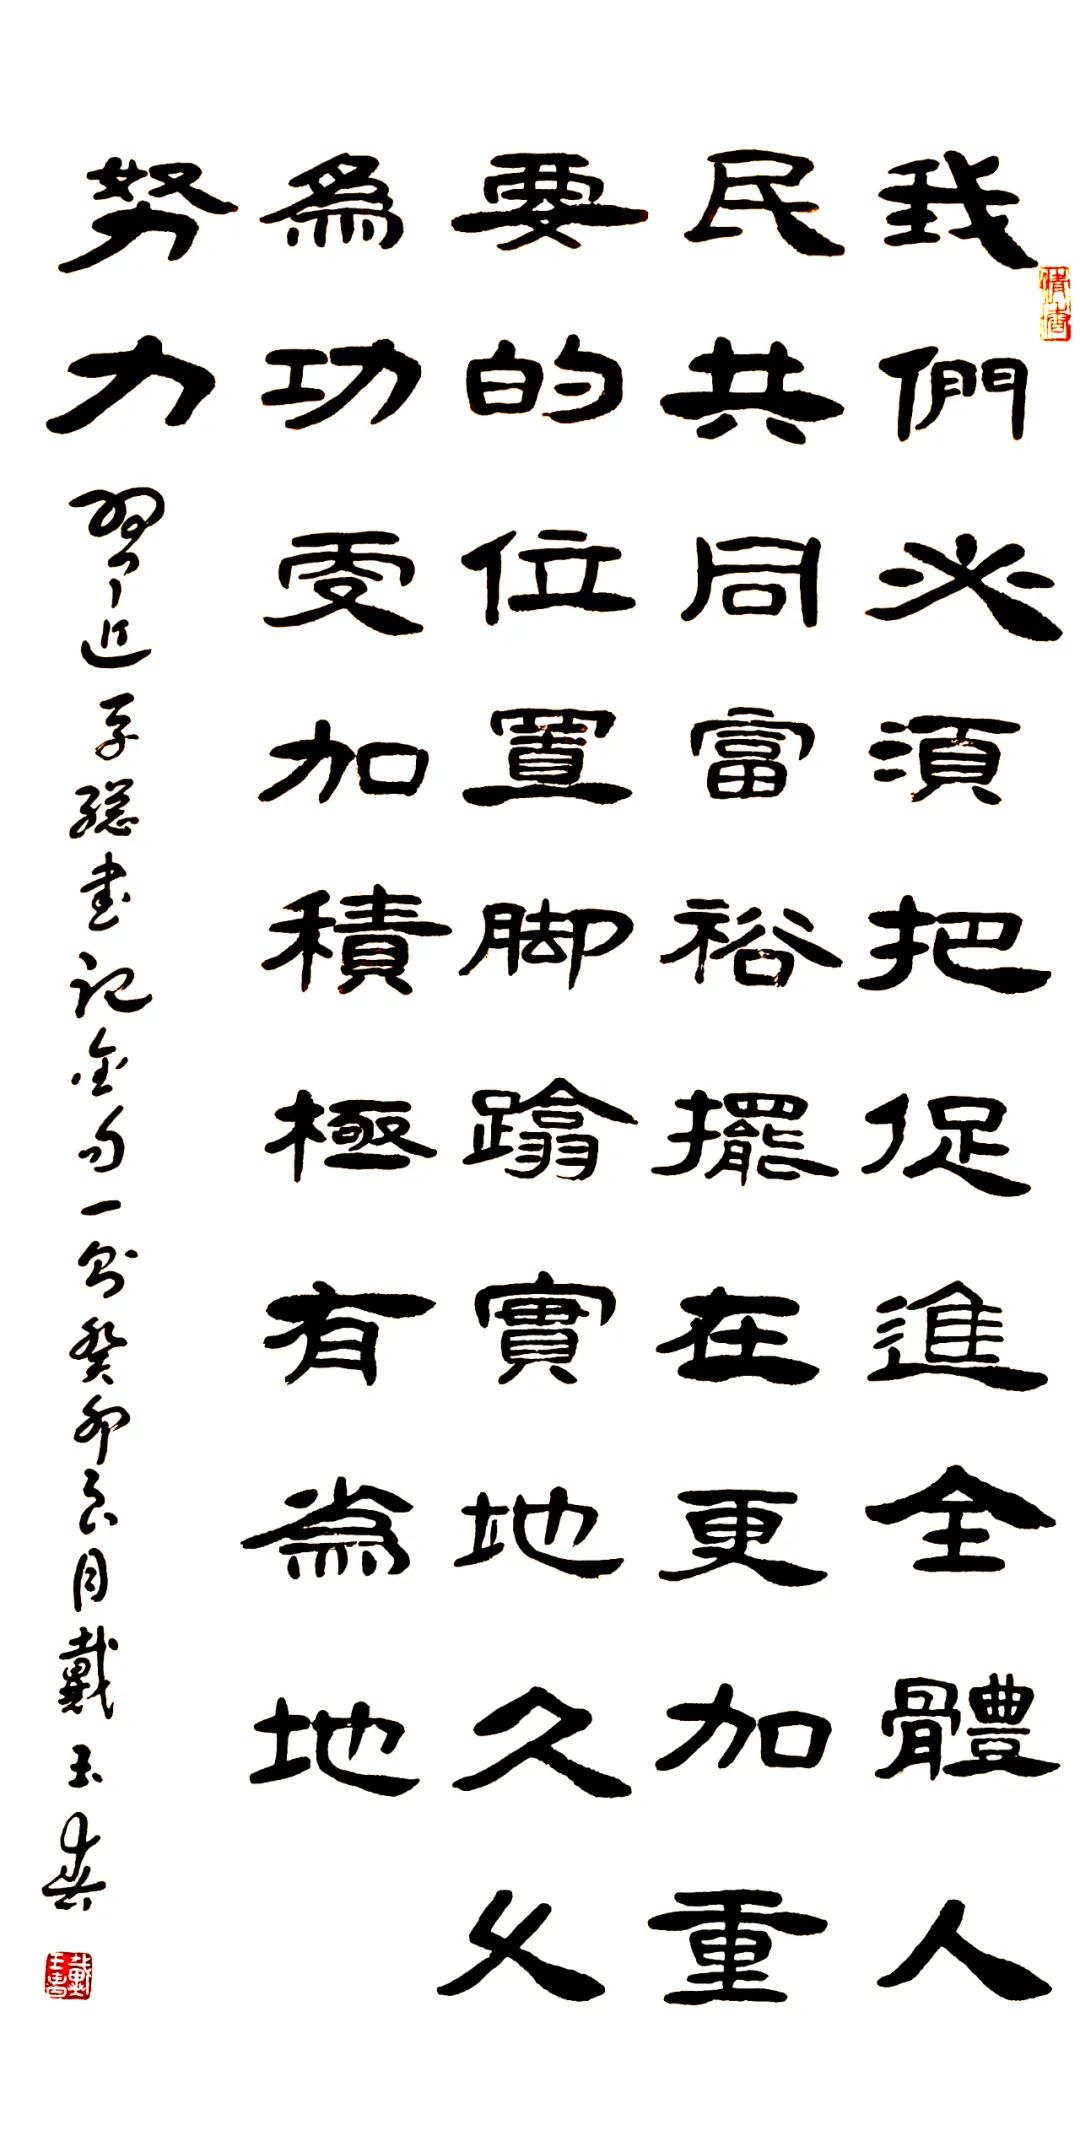 我們必須把促進全體人
民共同富裕擺在更加重
要的位置脚踏實地久久
爲功更加積極有為地
努力
習近平總書記金句一則癸卯良月戴玉